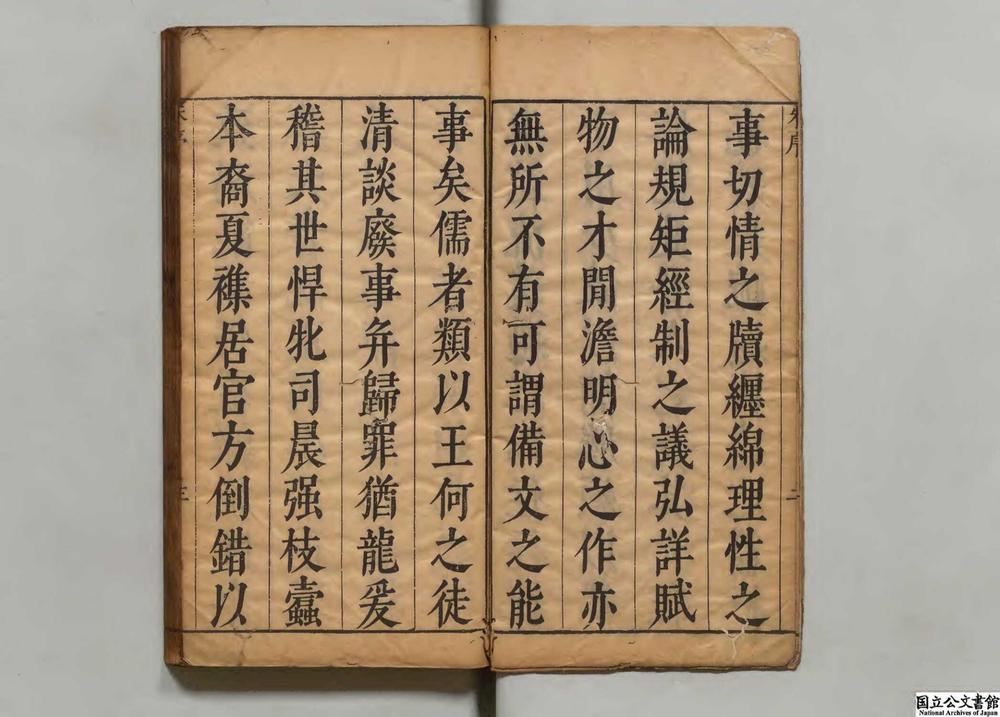 事切情之牘纏綿理性之
論規矩經制之議弘詳賦
物之才閒澹明心之作亦
無所不有可謂備文之能
事矣儒者類以王何之徒
清談廢事并歸罪猶龍爰
稽其世悍牝司晨强枝蠹
本裔夏襍居官方倒錯以
三
国立公文書館
National Archives of Japan